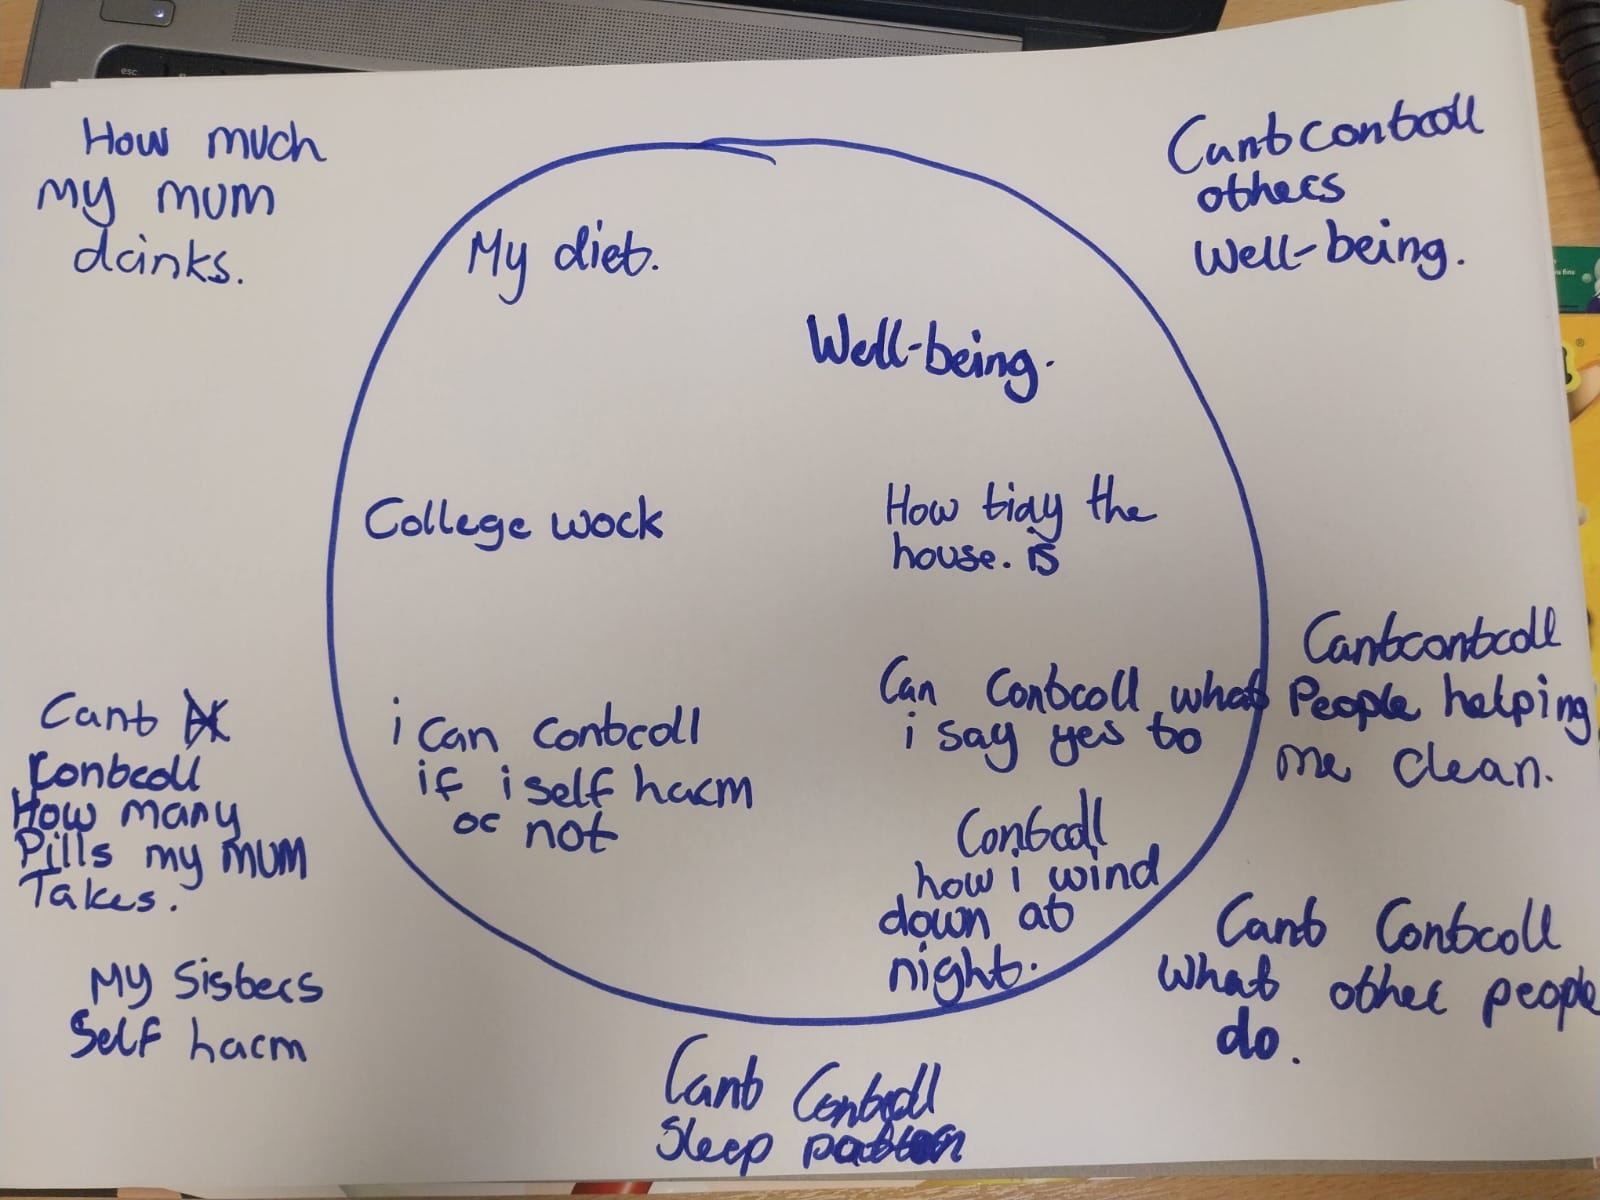 esc
How much
my mum
drinks.
Cant controll
others
Well-being.
My diet.
Well-being.
College work
How tidy the
house. is
Cant controll
People helping
me clean.
Can Controll what
i say yes to
i can controll
if i self harm
or not
Cant
Controll
How many
Pills my mum
Takes.
Controll
how i wind
down at
night.
Cant Controll
what other people
do.
My Sisters
Self harm
Cant Controll
Sleep pattern